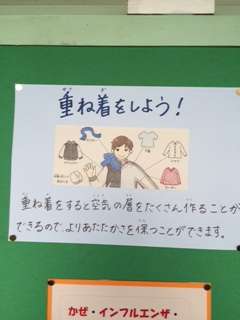 重ね着をしよう!
重ね着をすると空気の層をたくさん作ることが
できるので、よりあたたかさを保つことができます。
かぜ・インフルエンザ・